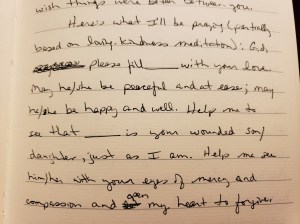 wish things were better between you.
Here's what I'll be praying (partially
based on loving-kindness meditation): God,
please fill ____ with your love.
May he/she be peaceful and at ease; may
he/she be happy and well. Help me to
see that ____ is your wounded son/
daughter, just as I am. Help me see
him/her with your eyes of mercy and
compassion and open my heart to forgive.